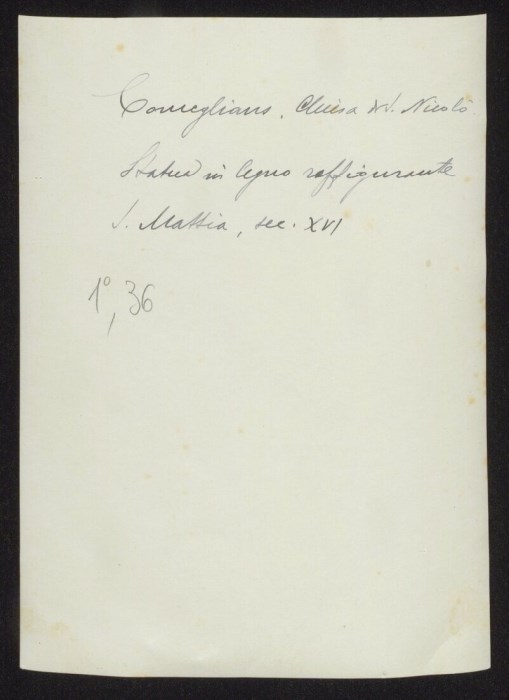 Comeglians. Chiesa di S. Nicolò
Statua in legno raffigurante
S. Mattia, sec. XVI
1°, 36